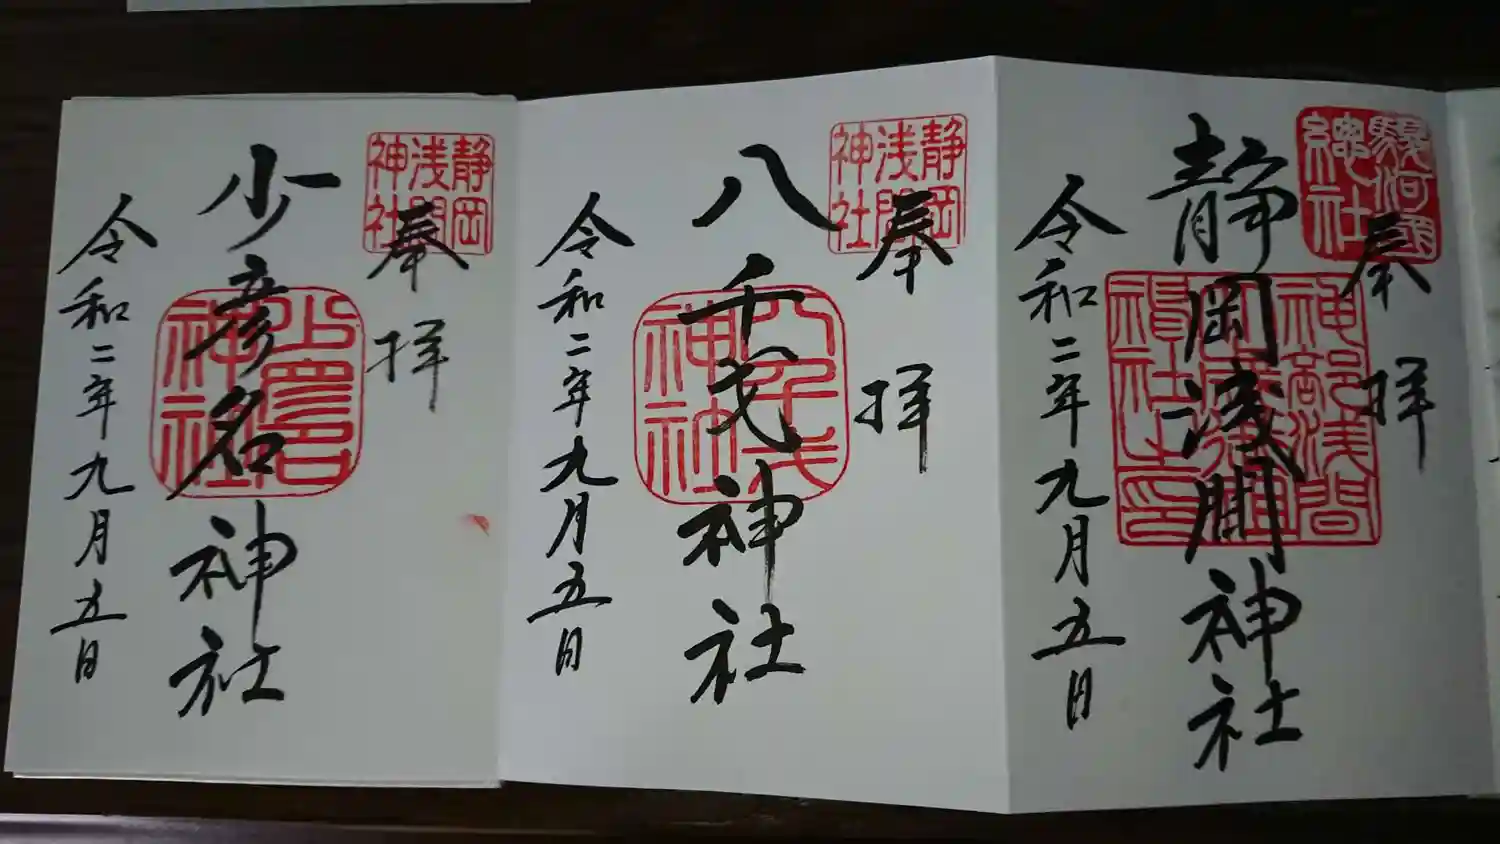 駿河國總社
奉拝
静岡浅間神社
神部浅間
令和二年九月五日
静岡浅間神社
奉拝
八千戈神社
八千戈神社
令和二年九月五日
静岡浅間神社
奉拝
少彦名神社
少彦名神社
令和二年九月五日